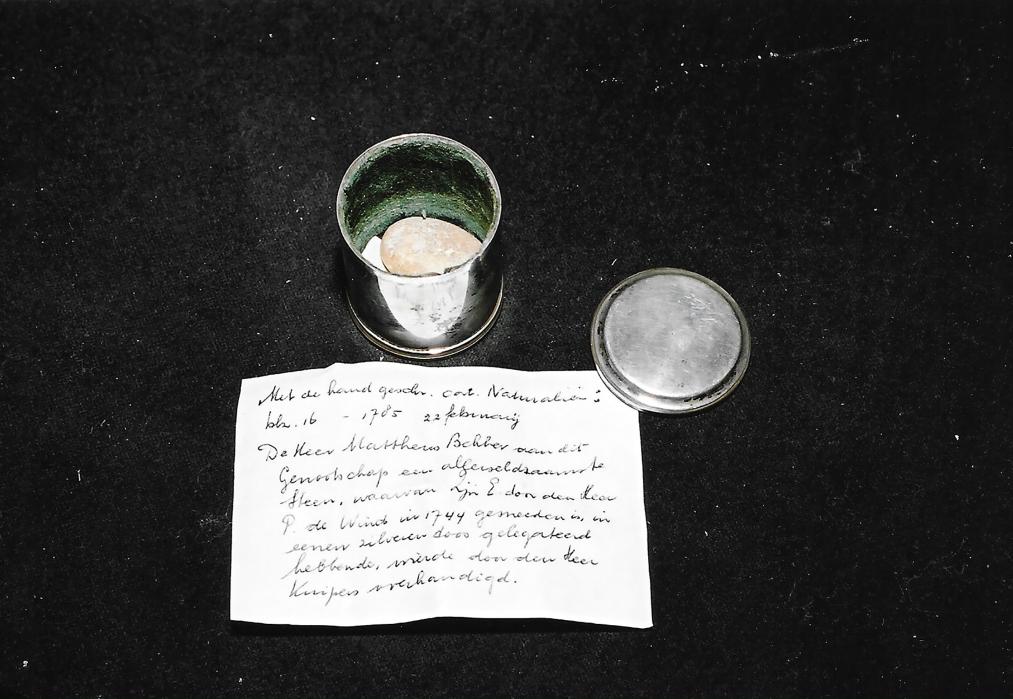 Met de hand geschr. cat. Naturaliën:
blz. 16 - 1785 22 februarij
De Heer Mattheus Bebber aan dit
Genootschap een allerseldzaamste
steen, waarvan zijn E. door den Heer
P. de Wind in 1744 gesneeden is, in
eenen zilveren doos gelegateerd
hebbende, wierde door den Heer
Kuipers overhandigd.